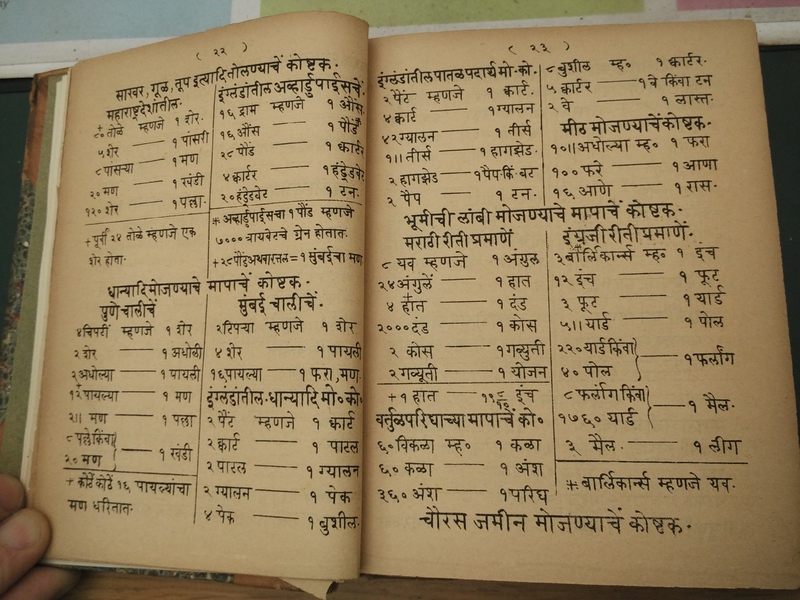 ( २२ )
साखर, गूळ, तूप इत्यादि तोलण्याचें कोष्टक.
महाराष्ट्रदेशांतील.
+८० तोळे म्हणजे १ शेर.
५ शेर —— १ पासरी
८ पासऱ्या —— १ मण
२० मण —— १ खंडी
१२० शेर —— १ पल्ला.
+ पूर्वी २४ तोळे म्हणजे एक
शेर होता.
इंग्लंडांतील अव्हार्डुपाईसचें
१६ द्राम म्हणजे १ औंस.
१६ औंस —— १ पौंड*
२८ पौंड —— १ कार्टर
४ कार्टर —— १ हंड्रेडवेट
२० हंड्रेडवेट —— १ टन.
* अव्हार्डुपाईसचा १ पौंड म्हणजे
७००० त्रायवेटचे ग्रेन होतात.
+ २८ पौंड = १ मुंबईचा मण
धान्यादि मोजण्याचे मापाचें कोष्टक.
पुणेंचालीचें
४ चिपटीं म्हणजे १ शेर
२ शेर —— १ अधोली
२ अधोल्या —— १ पायली
+१२ पायल्या —— १ मण
२॥ मण —— १ पल्ला
८ पल्लेकिंवा
२० मण —— १ खंडी
+ कोठें कोठें १६ पायल्यांचा
मण धरितात.
मुंबई चालीचें.
२ टिपऱ्या म्हणजे १ शेर
४ शेर —— १ पायली
१६ पायल्या —— १ फरा, मण.
इंग्लंडांतील. धान्यादि मो० को०
२ पैंट म्हणजे १ कार्ट
२ कार्ट —— १ पाटल
२ पाटल —— १ ग्यालन
२ ग्यालन —— १ पेक
४ पेक —— १ बुशील.
( २३ )
इंग्लंडांतील पातळ पदार्थ मो. को.
२ पैंट म्हणजे १ कार्ट.
४ कार्ट —— १ ग्यालन
४२ ग्यालन —— १ तीर्स
१॥ तीर्स —— १ हागझेड.
२ हागझेड —— १ पैप किं. बट
२ पैप —— १ टन.
८ बुशील म्ह० १ कार्टर.
५ कार्टर —— १ वे किंवा टन
२ वे —— १ लास्त.
मीठ मोजण्याचें कोष्टक.
१०॥ अधोल्या म्ह० १ फरा
१०० फरे —— १ आणा
१६ आणे —— १ रास.
भूमीची लांबी मोजण्याचे मापाचें कोष्टक.
मराठी रीतीप्रमाणें
८ यव म्हणजे १ अंगुल
२४ अंगुलें —— १ हात
४ हात —— १ दंड
२००० दंड —— १ कोस
२ कोस —— १ गव्युती
२ गव्यूती —— १ योजन
+ १ हात —— १९ ८/१६ इंच
वर्तुळपरिघाच्या मापाचें को०
६० विकळा म्ह० १ कळा
६० कळा —— १ अंश
३६० अंश —— १ परिघ
इंग्रजी रीतीप्रमाणें.
३ बार्लिकार्न्स म्ह० १ इंच
१२ इंच —— १ फूट
३ फूट —— १ यार्ड
५॥ यार्ड —— १ पोल
२२० यार्ड किंवा
४० पोल —— १ फर्लांग
८ फर्लांग किंवा
१७६० यार्ड —— १ मैल.
३ मैल. —— १ लीग
* बार्लिकार्न्स म्हणजे यव.
चौरस जमीन मोजण्याचें कोष्टक.